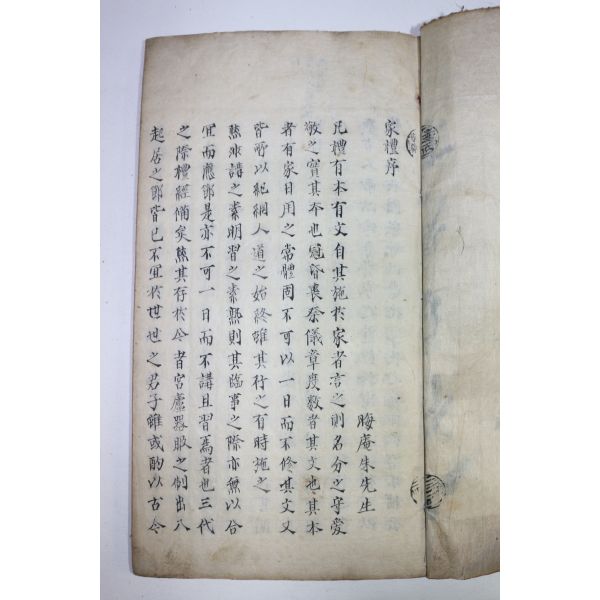 家禮序
晦庵朱先生
凡禮有本有文自其施於家者言之則名分之守愛
敬之實其本也冠昏喪祭儀章度數者其文也其本
者有家日用之常體固不可以一日而不修其文又
皆所以紀綱人道之始終雖其行之有時施之
然非講之素明習之素熟則其臨事之際亦無以合
宜而應節是亦不可一日而不講且習焉者也三代
之際禮經備矣然其存於今者宮廬器服之制出入
起居之節皆已不宜於世世之君子雖或酌以古今